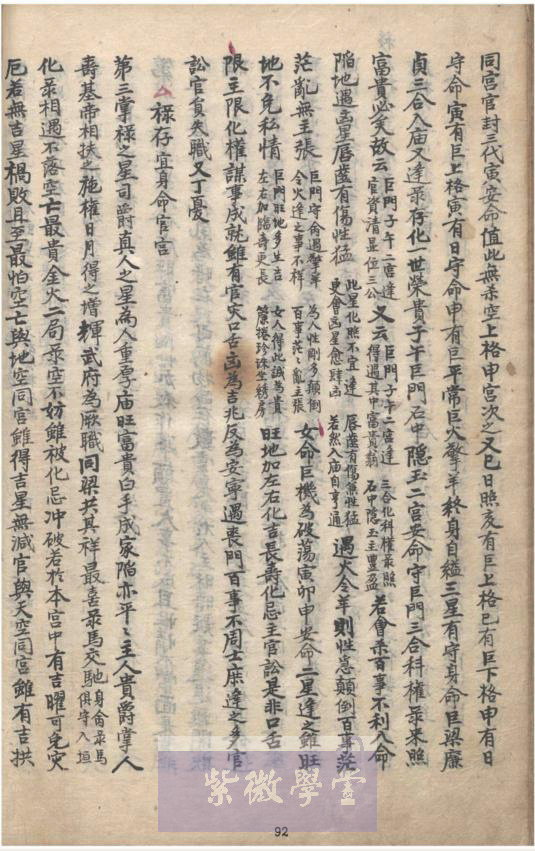 同宮官封三代寅安命值此無杀空上格申宮次之又巳日照亥有巨上格巳有巨下格申有日
守命寅有巨上格寅有日守命申有巨平常巨火擎羊終身自縊三星有守身命巨梁廉
貞三合入庙又逢彔存化一世榮貴子午巨門石中隱玉二宮安命守巨門三合科權彔來照
富貴必矣故云巨門子午二宮逢官資清显位三公又云巨門子午二宮逢得遇其中富貴翁三合化科權最照石中隱玉主豐盈若會杀百事不利入命
陷地遇凶星唇齒有傷性猛此星化照不宜逢更會凶星愈肆凶唇齒有傷兼性猛若然入庙自亨通遇火令羊則性急顛倒百事茫
茫亂無主張巨門守命遇擎羊令火逢之事不祥為人性剛多顛倒百事茫茫亂主張女命巨機為破蕩寅卯申安命二星逢之雖旺
地不免私情巨門旺地多生吉左右加臨壽更長女人得此誠為貴簾捲珍珠坐綉房旺地加左右化吉長壽化忌主官訟是非口舌
限主限化權謀事成就雖有官灾口舌凶為吉兆反為安寧遇喪門百事不周士庶逢之多官
訟官貟失職又丁憂
祿存宜身命官宮
第三掌祿之星司爵真人之星為人重厚庙旺富貴白手成家陷亦平〻主人貴爵掌人
壽基帝相扶之施權日月得之增輝武府為厥職同梁共其祥最喜彔馬交馳身命彔馬俱守入垣
化彔相遇不落空亡最貴金火二局彔空不妨雖被化忌冲破若於本宮中有吉曜可免灾
厄若無吉星楬敗且至最怕空亡與地空同宮雖得吉星無減官與天空同宮雖有吉拱
紫微學堂
92